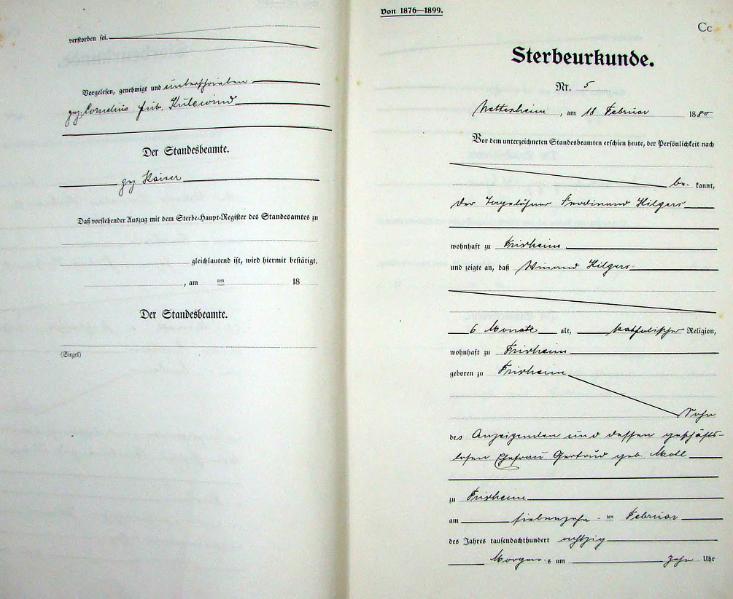 verstorben sei.
Vorgelesen, genehmigt und unterschrieben
gez. Cornelius geb.
Der Standesbeamte.
gez Kaiser
Daß vorstehender Auszug mit dem Sterbe-Haupt-Register des Standesamtes zu
gleichlautend ist, wird hiermit bestätigt.
, am ten 18
Der Standesbeamte.
(Siegel)
Von 1876—1899.
Cc
Sterbeurkunde.
Nr. 5
Nettesheim, am 18 Februar 1880
Vor dem unterzeichneten Standesbeamten erschien heute, der Persönlichkeit nach
be- kannt,
der Tagelöhner Ferdinand Hilgers
wohnhaft zu Frixheim
und zeigte an, daß Hilgers
6 Monate alt, katholischer Religion,
wohnhaft zu Frixheim
geboren zu Frixheim
Sohn
des Anzeigenden und dessen geschäfts-
losen Ehefrau Gertrud geb. Moll
zu Frixheim
am siebenzehnten Februar
des Jahres tausendachthundert achtzig
Morgens um zehn Uhr